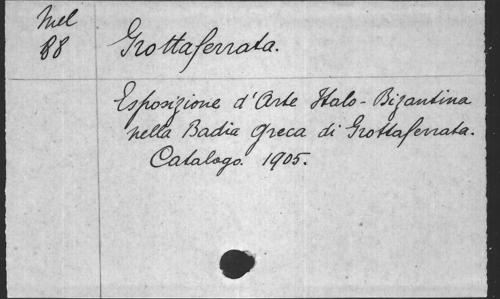 Mel
B8
Grottaferrata.
Esposizione d'Arte Italo-Bizantina
nella Badia Greca di Grottaferrata.
Catalogo. 1905.